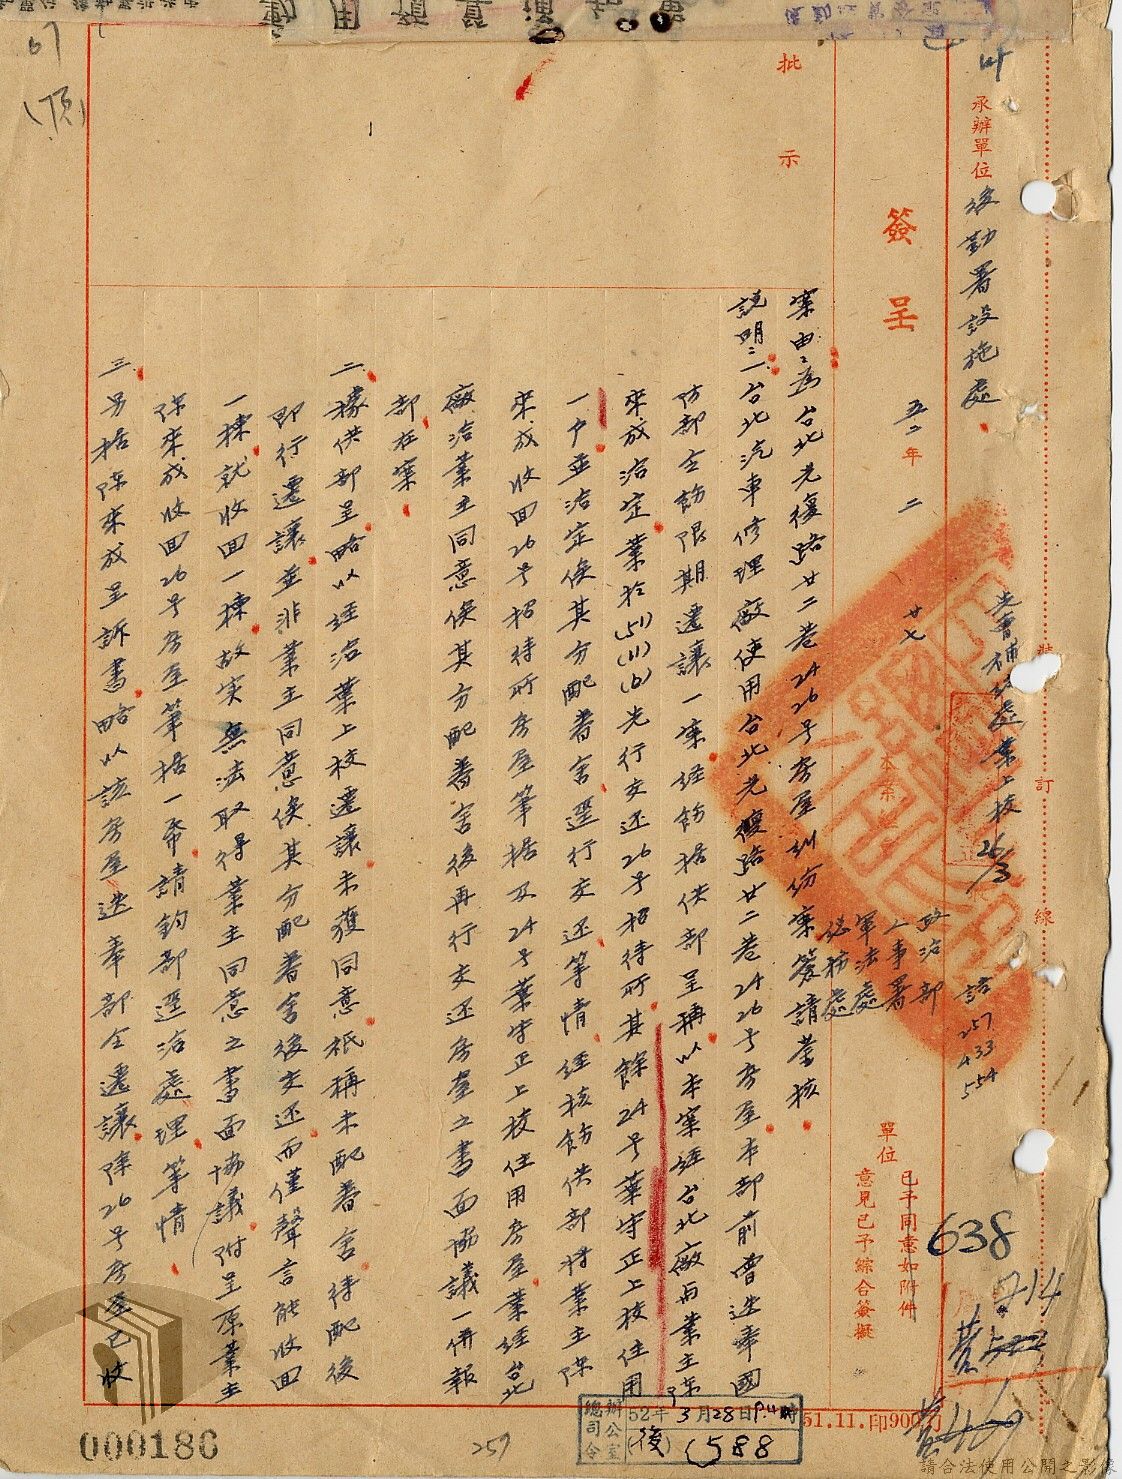 承辦單位 後勤署設施處
簽呈 五二年二廿七
批示
裝
訂
線
先會補給處葉上校 26/3
政治部
人事署
軍法處
總務處
話 257
433
554
單位
已予同意如附件
意見已予綜合簽擬
案由:為台北光復路廿二巷24 26号房屋糾紛案簽請鑒核
說明:一台北汽車修理廠使用台北光復路廿二巷24 26号房屋本部前曾迭奉國
防部令飭限期遷讓一案經飭据供部呈稱以本案經台北廠与業主陳
來成洽定業於(51)(11)(6)先行交还26号招待所其餘24号葉守正上校住用
一户並洽定俟其分配眷舍逕行交还等情經核飭供部将業主陳
來成收回26号招待所房屋筆据及24号葉守正上校住用房屋業經台北
廠洽業主同意俟其分配眷舍後再行交还房屋之書面協議一併報
部在案
二據供部呈略以經洽葉上校遷讓未獲同意祇稱未配眷舍待配後
即行遷讓並非業主同意俟其分配眷舍後交还而僅聲言能收回
一棟就收回一棟故实無法取得業主同意之書面協議附呈原業主
陳來成收回26号房屋筆据一帋請鈞部逕洽處理等情
三另据陳來成呈訴書略以該房屋迭奉部令遷讓除26号房屋已收
638
714
總司令
辦公室
52年3月28日P.4時
(後) 1588
51.11.印900刀
67
(頂)
257
000186
請合法使用公開之影像